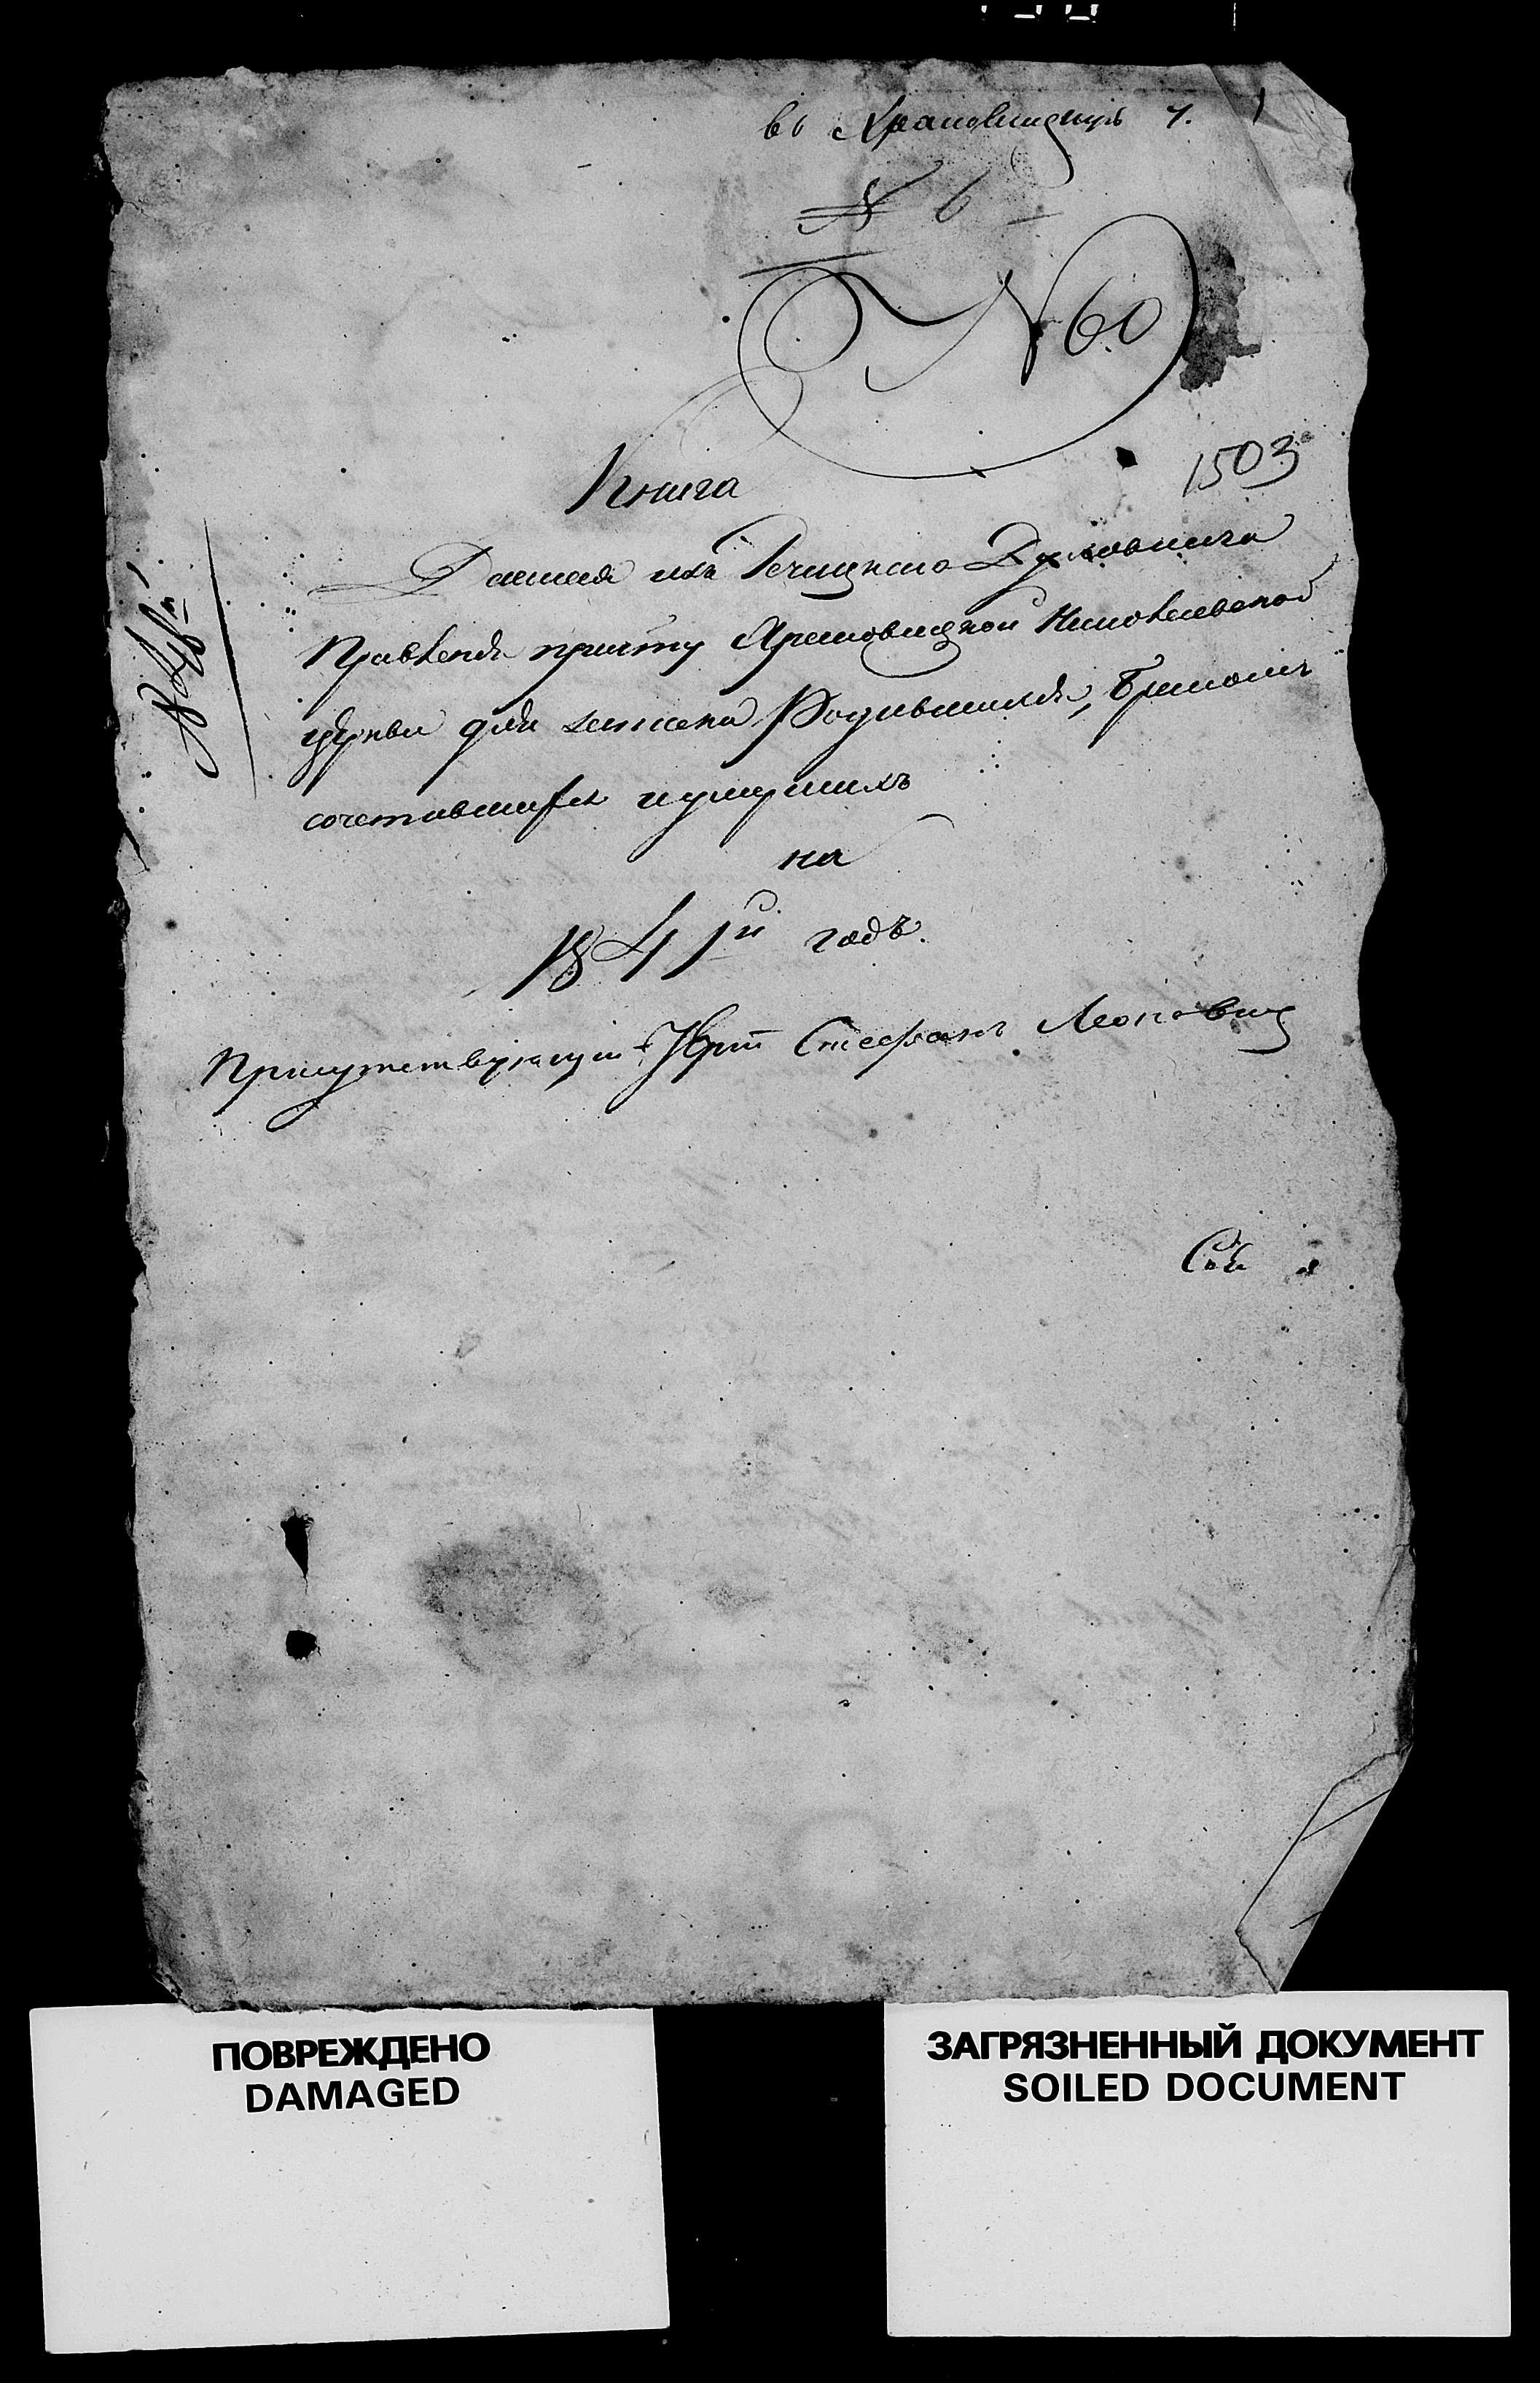 въ
№ 6
№ 60
1503
Книга
Данная изъ Речицкаго Духовнаго
Правленія причту Николаевской
церкви для записки Родившихся, бракомъ
сочетавшихся и умершихъ
на
1841й годъ.
Присутствующій Іерей Стефанъ Леонович
ПОВРЕЖДЕНО
DAMAGED
ЗАГРЯЗНЕННЫЙ ДОКУМЕНТ
SOILED DOCUMENT